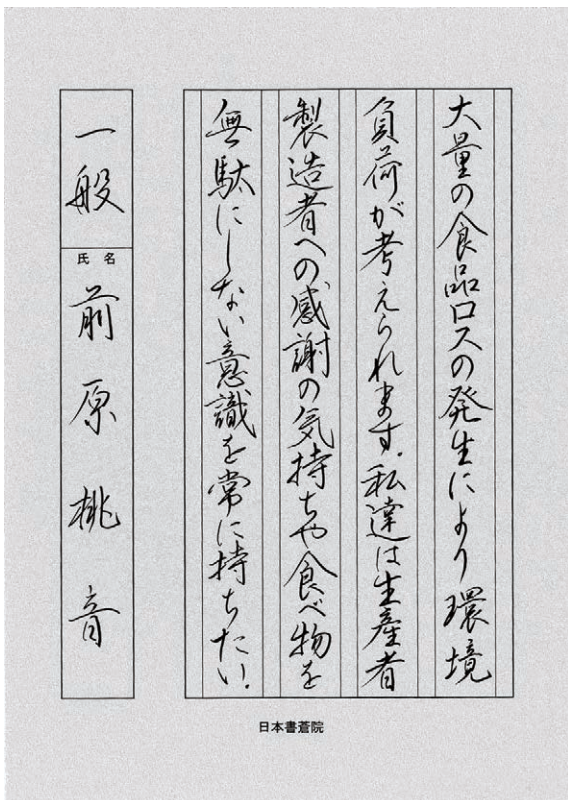 大量の食品ロスの発生により環境
負荷が考えられます.私達は生産者
製造者への感謝の気持ちや食べ物を
無駄にしない意識を常に持ちたい.
一般
氏名
前原桃音
日本書蒼院